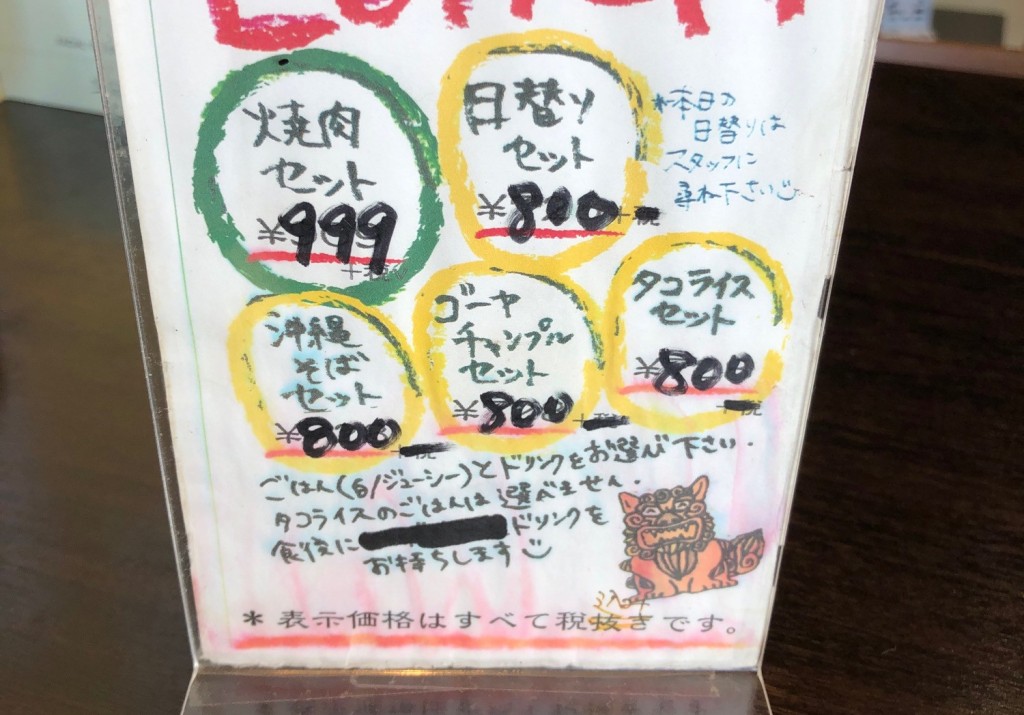 LUNCH
焼肉
セット
¥999
+税
日替り
セット
¥800
+税
*本日の
日替りは
スタッフに
尋ね下さい
沖縄
そば
セット
¥800
税
ゴーヤ
チャンプル
セット
¥800
+税
タコライス
セット
¥800
+税
ごはん(白/ジューシー)とドリンクをお選び下さい.
タコライスのごはんは選べません.
食後に ドリンクを
お持ちします
*表示価格はすべて税抜きです。
込